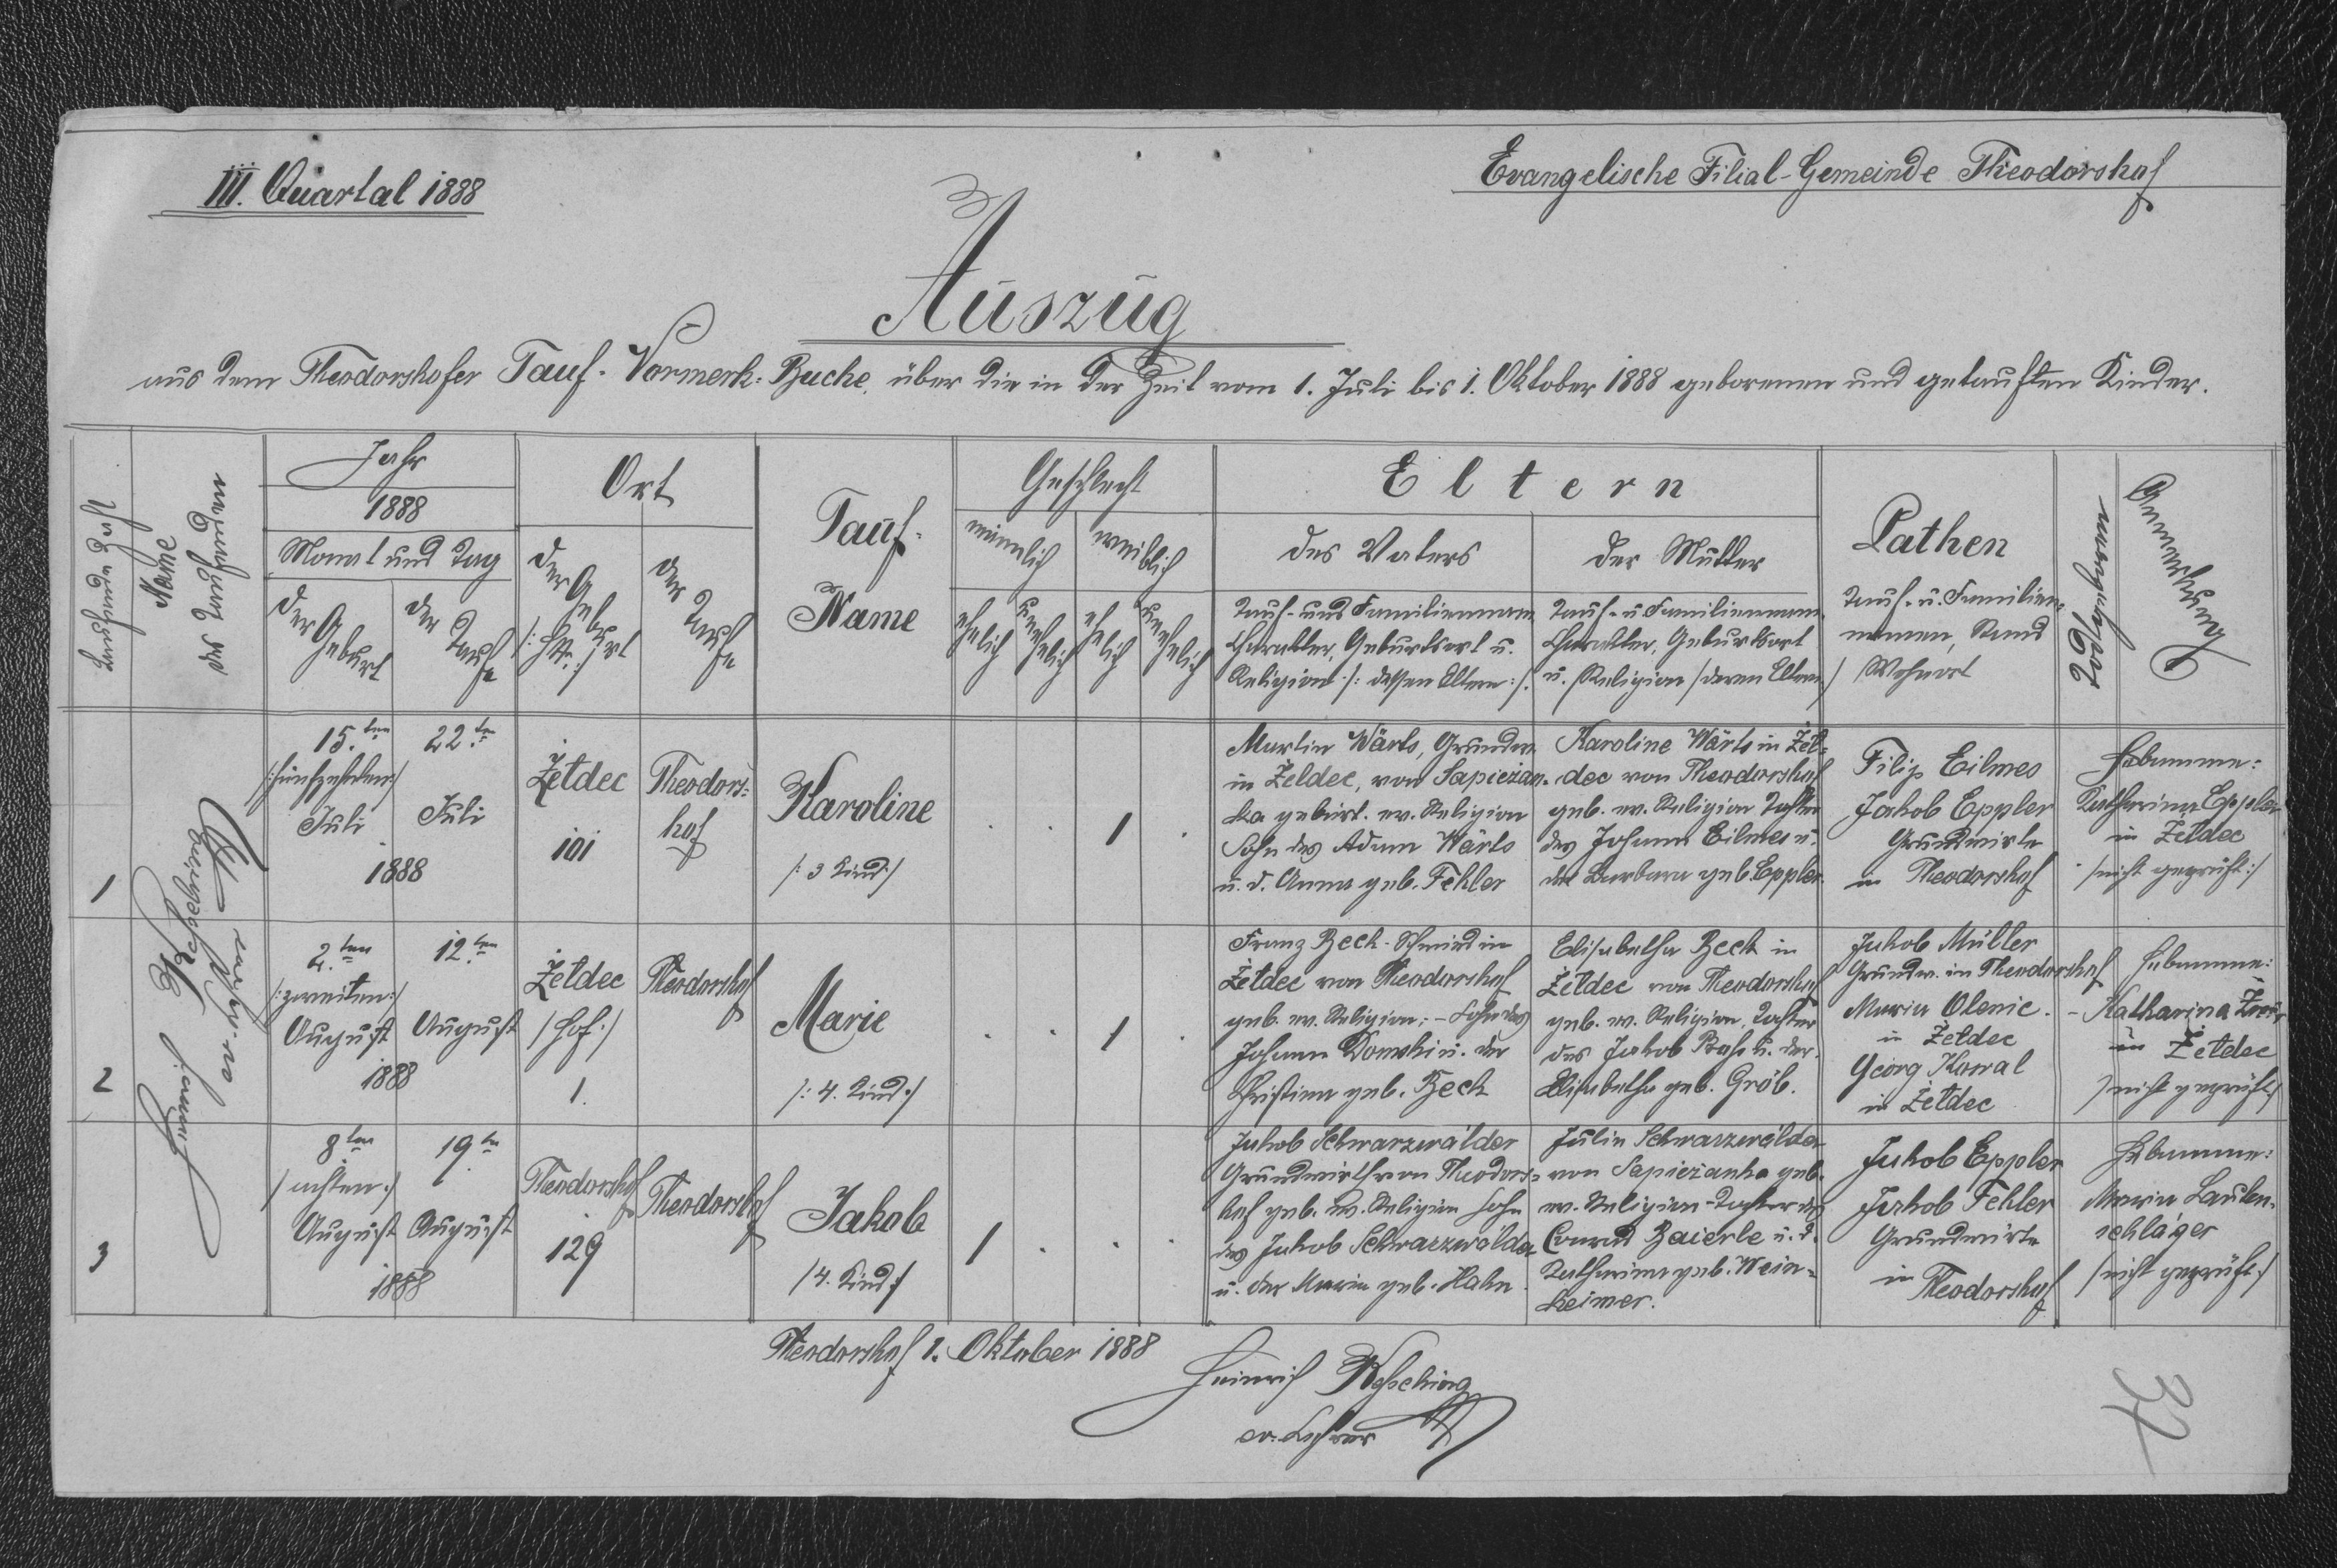 III. Quartal 1888
Evangelische Filial-Gemeinde Theodorshof
Auszug
aus dem Theodorshofer Tauf-Vormerk-Buche über die in der Zeit vom 1. Juli bis 1. Oktober 1888 geborenen und getauften Kinder.
Laufende Zahl
Name
des Taufenden
Jahr
1888
Monat und Tag
der Geburt
der Taufe
Ort
der Geburt
der Taufe
Tauf-
Name
Geschlecht
männlich
weiblich
ehelich
unehelich
ehelich
unehelich
Eltern
des Vaters
der Mutter
Tauf- und Familienname
Charakter, Geburtsort u.
Religion /: dessen Eltern :/
Tauf- u Familienname
Charakter, Geburtsort
u. Religion / deren Eltern /
Pathen
Tauf- u. Familien-
namen, Stand
Wohnort
Todtgeboren
Anmerkung
1
15.ten
/:fünfzehnten:/
Juli
22.ten
Juli
1888
Żeldec
101
Theodors-
hof
Karoline
/: 3 Kind :/
1
Martin Wärts, Grundw.
in Żeldec, von Sapieżan-
ka gebürt. ev. Religion
Sohn des Adam Wärts
u. d. Anna geb. Fehler
Karoline Wärts in Żel-
dec von Theodorshof
geb. ev. Religion Tochter
des Johann Eilmes u.
der Barbara geb. Eppler.
Filip Eilmes
Jakob Eppler
Grundwirte
in Theodorshof
Hebamme:
Katharina Eppler
in Żeldec
/nicht geprüft:/
Heinrich
ev. Lehrer
2
2.ten
/:zweiten:/
August
12.ten
August
1888
Żeldec
/Hof:/
1.
Theodorshof
Marie
/: 4. Kind :/
1
Franz Beck - Schmied in
Żeldec von Theodorshof
geb. ev. Religion; - Sohn des
Johann Domski u. der
Christina geb. Beck
Elisabetha Beck in
Żeldec von Theodorshof
geb. ev. Religion, Tochter
des Jakob u. der
Elisabetha geb. Gröb.
Jakob Müller
Grundw. in Theodorshof
Maria Olenic.
in Żeldec
Georg Kowal
in Żeldec
Hebamme:
Katharina
in Żeldec
/nicht geprüft:/
3
8ten
/achten:/
August
19.ten
August
1888
Theodorshof
129
Theodorshof
Jakob
/4. Kind:/
1
Jakob Schwarzwälder
Grundwirth von Theodors-
hof geb. ev. Religion Sohn
des Jakob Schwarzwälder
u. der Maria geb. Hahn
Julie Schwarzwälder
von Sapieżanka geb.
ev. Religion - Tochter des
Conrad Baierle u. d.
Katharina geb. Wein-
heimer.
Jakob Eppler
Jakob Fehler
Grundwirte
in Theodorshof
Hebamme:
Maria Lauten-
schläger
/nicht geprüft:/
Theodorshof 1. Oktober 1888
Heinrich
ev. Lehrer